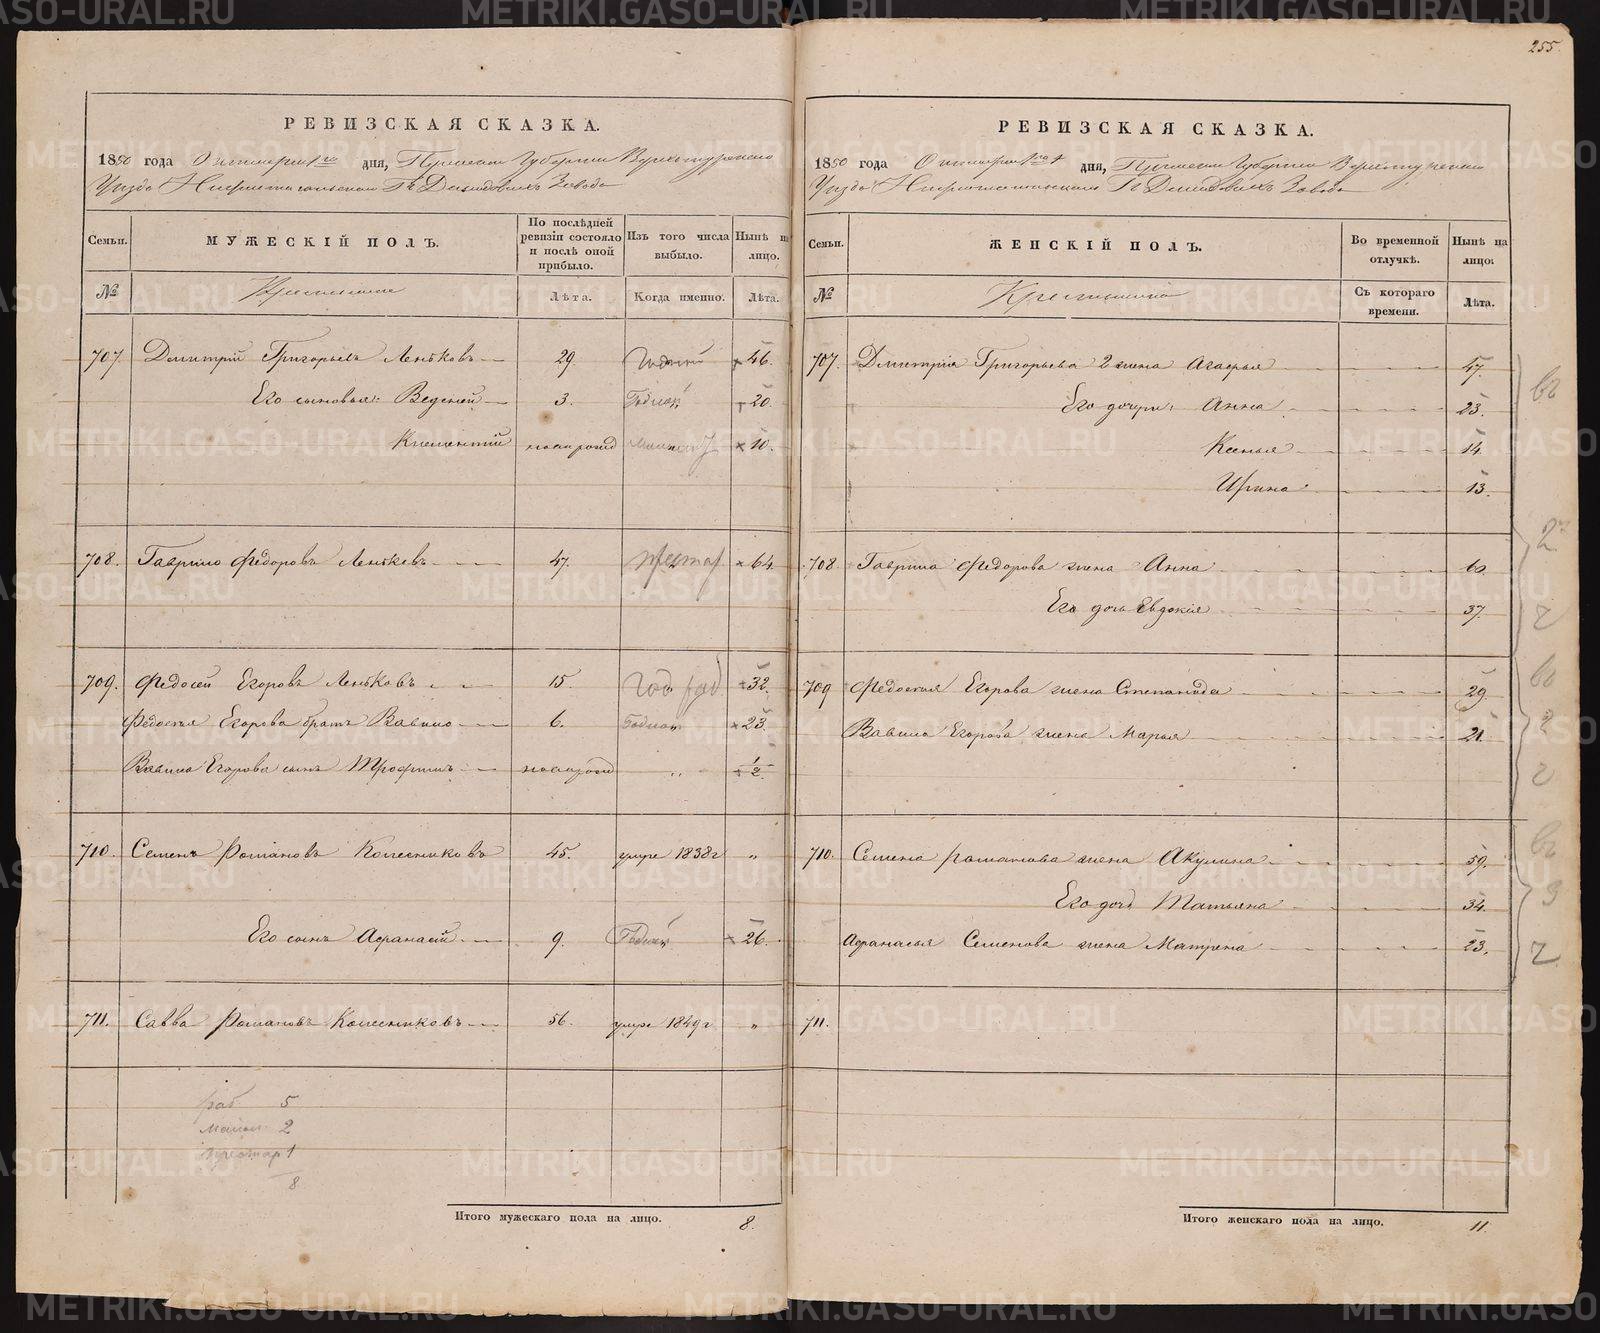 255.
РЕВИЗСКАЯ СКАЗКА.
1850 года Октября 1го дня, Пермской Губернии Верхотурскаго
Уезда Нижнетагильскаго Гг. Демидовыхъ Завода
Семьи.
МУЖЕСКІЙ ПОЛЪ.
По послѣдней ревизіи состояло и послѣ оной прибыло.
Изъ того числа выбыло.
Нынѣ на лицо.
№ Крестьяне Лѣта. Когда именно. Лѣта.
707. Дмитрій Григорьевъ Леньковъ 29. Годной 46.
Его сыновья: Веденей 3. Годной 20.
Климентій новорожд 10.
708. Гаврило Федоровъ Леньковъ 47. престар 64.
709. Федосей Егоровъ Леньковъ 15. Год 32.
Федосея Егорова братъ Вавило 6. Годной 23.
Вавила Егорова сынъ Трофимъ новорожд „ 1/2.
710. Семенъ Романовъ Колесниковъ 45. умре 1838г „
Его сынъ Афанасій 9. Годной 26.
711. Савва Романовъ Колесниковъ 56. умре 1849г „
раб 5
малол 2
престар 1
8
Итого мужескаго пола на лицо. 8.
РЕВИЗСКАЯ СКАЗКА.
1850 года Октября 1го дня, Пермской Губернии Верхотурскаго
Уезда Нижнетагильскаго Гг. Демидовыхъ Завода
Семьи.
ЖЕНСКІЙ ПОЛЪ.
Во временной отлучкѣ.
Нынѣ на лицо.
№ Крестьянки Съ котораго времени. Лѣта.
707. Дмитрія Григорьева 2 жена Агафья 47.
Его дочери: Анна 23.
Ксенья 14.
Ирина 13.
708. Гаврила Федорова жена Анна 60.
Его дочь Евдокія 37.
709 Федосея Егорова жена Степанида 29.
Вавила Егорова жена Марья 21.
710. Семена Романова жена Акулина 59.
Его дочь Татьяна 34.
Афанасья Семенова жена Матрена 23.
711.
Итого женскаго пола на лицо. 11.
METRIKI.GASO-URAL.RU